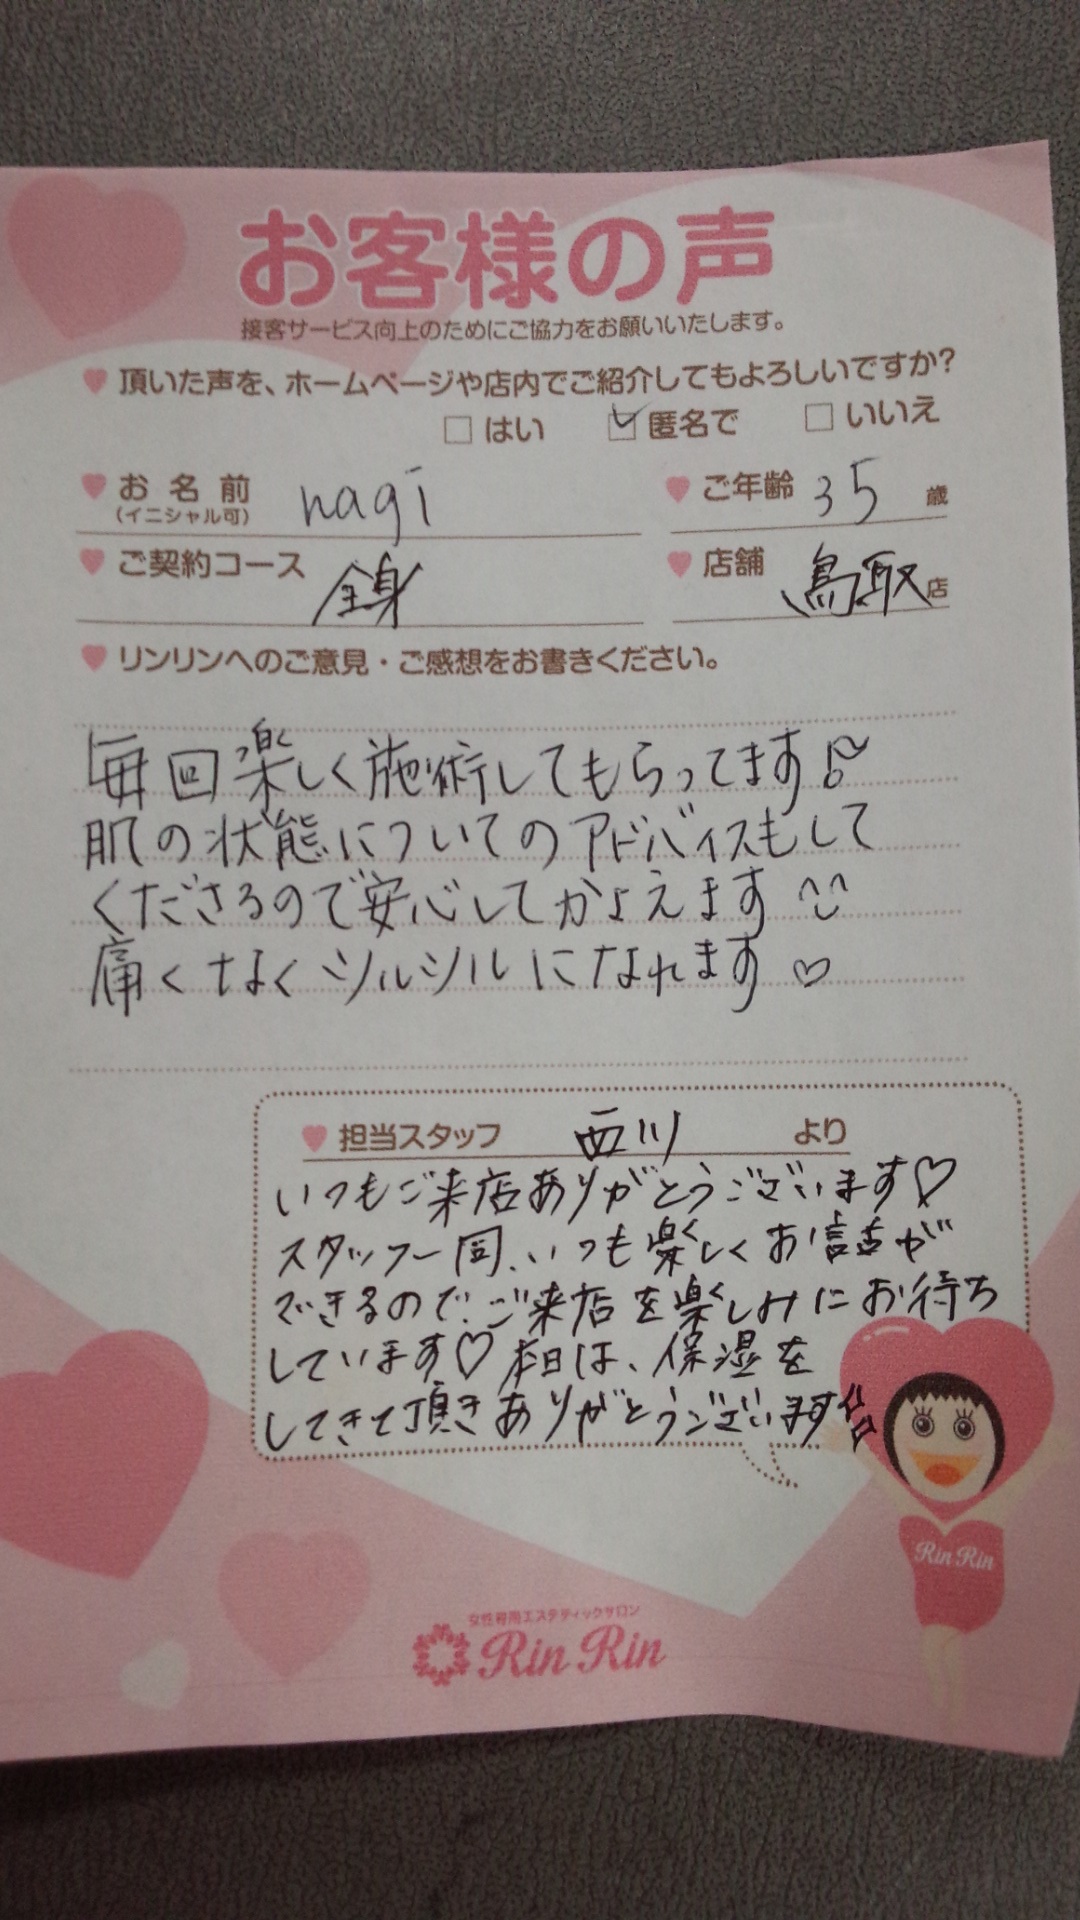 お客様の声
接客サービス向上のためにご協力をお願いいたします。
♥ 頂いた声を、ホームページや店内でご紹介してもよろしいですか?
□ はい ☑ 匿名で □ いいえ
♥ お名前 nagi ♥ ご年齢 35 歳
(イニシャル可)
♥ ご契約コース 全身 ♥ 店舗 鳥取 店
♥ リンリンへのご意見・ご感想をお書きください。
毎回楽しく施術してもらってます♪
肌の状態についてのアドバイスもして
くださるので安心してかよえます^^
痛くなくツルツルになれます♡
♥ 担当スタッフ 西川 より
いつもご来店ありがとうございます♡
スタッフ一同、いつも楽しくお話が
できるので、ご来店を楽しみにお待ち
しています♡ 本日は、保湿を
してきて頂きありがとうございます
Rin Rin
女性専用エステティックサロン
Rin Rin